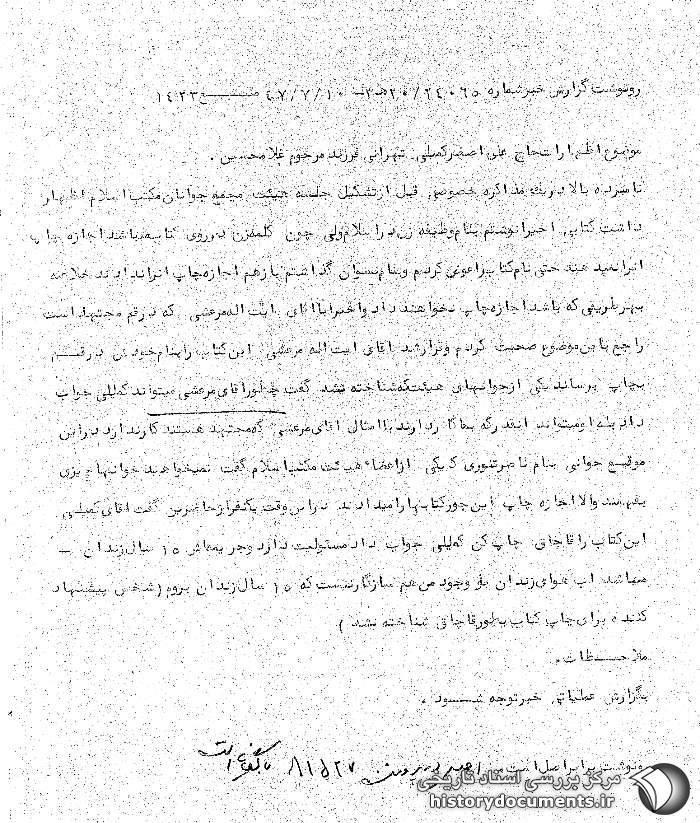 رونوشت گزارش خبر شماره ۲۰/۲۴۰۶۵ هـ ۳ - ۴۷/۷/۱۰ منبع ۱۴۲۳
موضوع اظهارات حاج علی اصغر کمیلی تهرانی فرزند مرحوم غلامحسین .
نامبرده بالا در یک مذاکره خصوصی قبل از تشکیل جلسه هیئت مجمع جوانان مکتب اسلام اظهار
داشت کتابی اخیرا نوشتم بنام وظیفه زن در اسلام ولی چون کلمه زن در روی کتاب میباشد اجازه چاپ
انرا نمیدهند حتی نام کتاب را عوض کردم و بنام نسوان گذاشتم باز هم اجازه چاپ انرا ندادند خلاصه
بهر طریقی که باشد اجازه چاپ نخواهند داد و اخیرا با اقای ایت اله مرعشی که در قم مجتهد است
راجع باین موضوع صحبت کردم و قرار شد اقای ایت اله مرعشی این کتاب را بنام خودش در قم
بچاپ برساند یکی از جوانهای هیئت که شناخته نشد گفت چطور اقای مرعشی میتواند کمیلی جواب
داد بله او میتواند انقدر که بما کار دارند با امثال اقای مرعشی که مجتهد هستند کار ندارد در این
موقع جوانی بنام ناصر تنوری که یکی از اعضاء هیئت مکتب اسلام گفت نمیخواهند جوانها چیزی
بفهمند والا اجازه چاپ این جور کتابها را میدادند در این وقت یکنفر از حاضرین گفت اقای کمیلی
این کتاب را قاچاق چاپ کن کمیلی جواب داد مسئولیت دارد و جریمه اش ۱۵ سال زندان -
میباشد اب هوای زندان بو وجود من هم سازگار نیست که ۱۵ سال زندان بروم (شخص پیشنهاد
کننده برای چاپ کتاب بطور قاچاق شناخته نشد )
ملاحظات .
بگزارش عملیاتی خبر توجه شود .
رونوشت برابر اصل است
مرکز بررسی اسناد تاریخی
historydocuments.ir